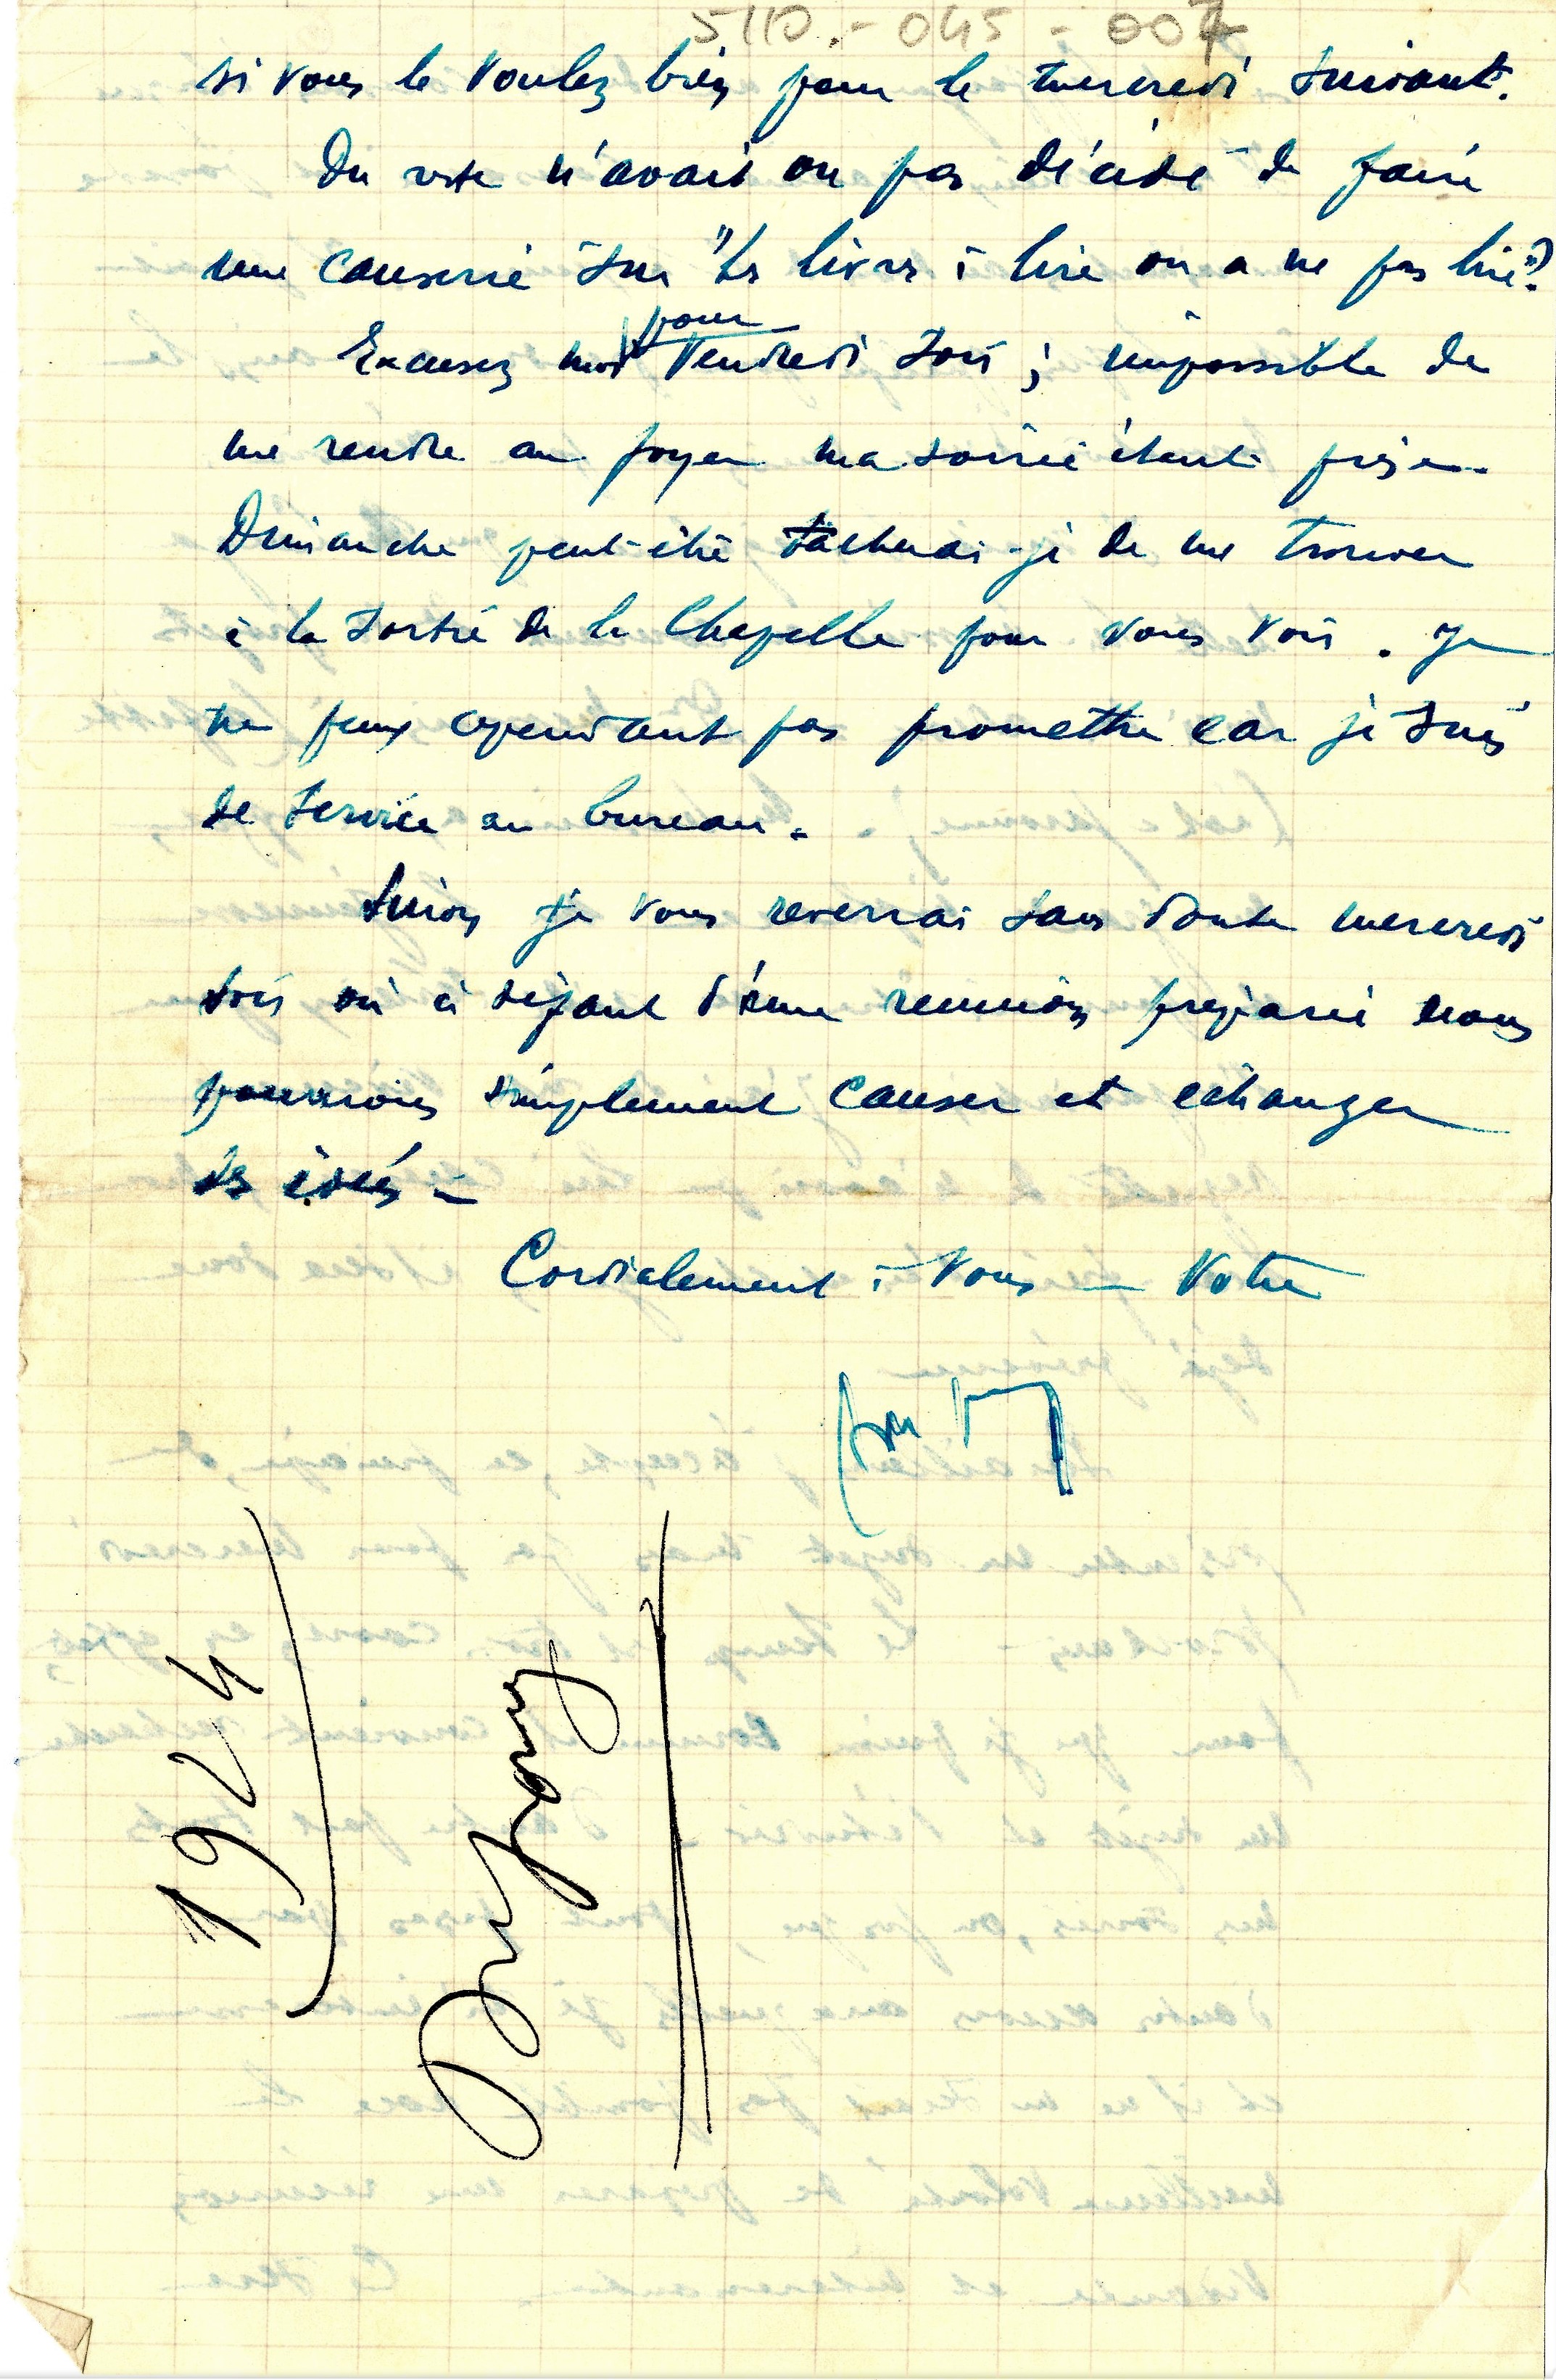 5110.-045-007
si vous le voulez bien pour le mercredi suivant.
Du reste n'avait on pas décidé de faire
une causerie sur "les livres à lire ou a ne pas lire"?
Excusez moi pour Vendredi soir ; impossible de
me rendre au foyer ma soirée étant prise.
Dimanche peut-être tâcherai-je de me trouver
à la sortie de la Chapelle pour vous voir. Je
ne peux cependant pas promettre car je suis
de service au bureau.
Sinon je vous reverrai sans doute mercredi
soir où à défaut d'une reunion préparée nous
pourrions simplement causer et échanger
des idées -
Cordialement à vous - Votre
1924